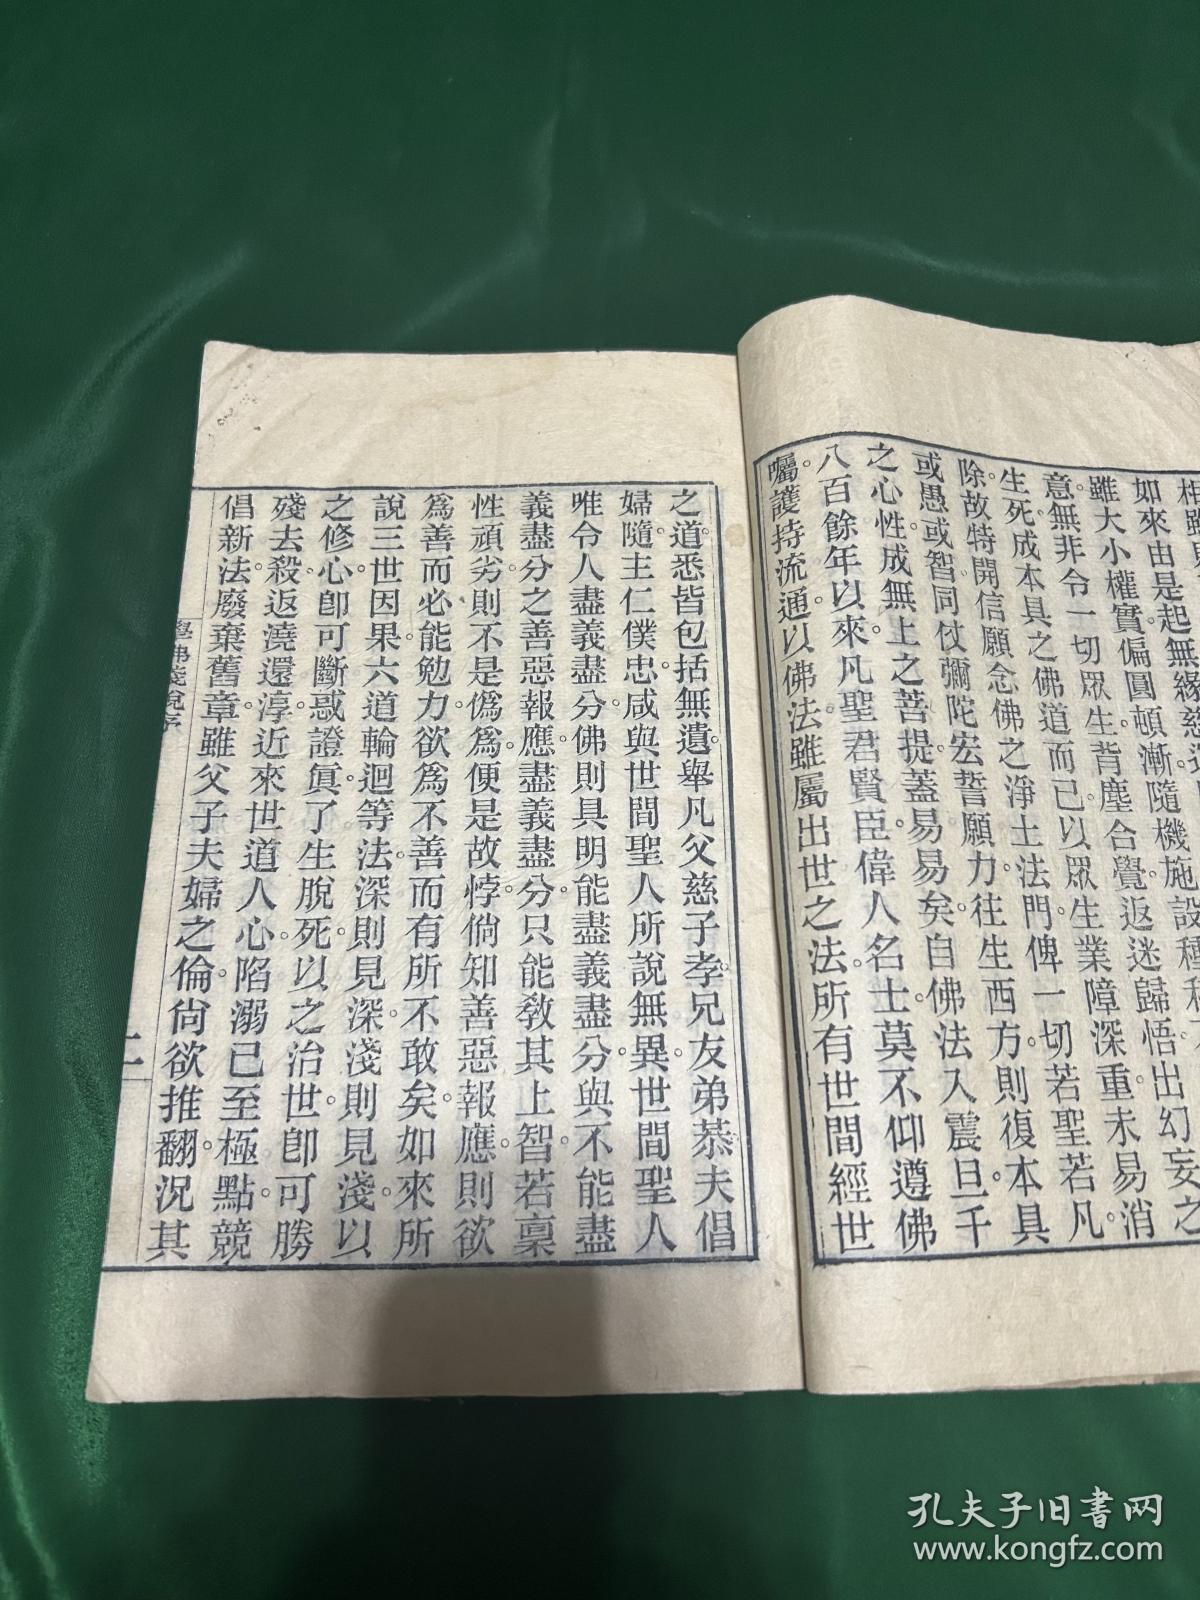 如來由是起無緣慈
雖大小權實偏圓頓漸隨機施設種種
意無非令一切眾生背塵合覺返迷歸悟出幻妄之
生死成本具之佛道而已以眾生業障深重未易消
除故特開信願念佛之淨土法門俾一切若聖若凡
或愚或智同仗彌陀宏誓願力往生西方則復本具
之心性成無上之菩提蓋易易矣自佛法入震旦千
八百餘年以來凡聖君賢臣偉人名士莫不仰遵佛
囑護持流通以佛法雖屬出世之法所有世間經世
之道悉皆包括無遺舉凡父慈子孝兄友弟恭夫倡
婦隨主仁僕忠咸與世間聖人所說無異世間聖人
唯令人盡義盡分佛則具明能盡義盡分與不能盡
義盡分之善惡報應盡義盡分只能教其上智若稟
性頑劣則不是僞爲便是故悖倘知善惡報應則欲
爲善而必能勉力欲爲不善而有所不敢矣如來所
說三世因果六道輪迴等法深則見深淺則見淺以
之修心卽可斷惑證眞了生脫死以之治世卽可勝
殘去殺返澆還淳近來世道人心陷溺已至極點競
倡新法廢棄舊章雖父子夫婦之倫尙欲推翻況其
學佛淺說序
二
孔夫子旧书网
www.kongfz.com